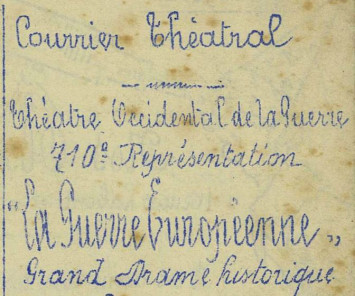 Courrier Théatral
Théatre Occidental de la Guerre
710e Représentation
"La Guerre Européenne"
Grand Drame historique